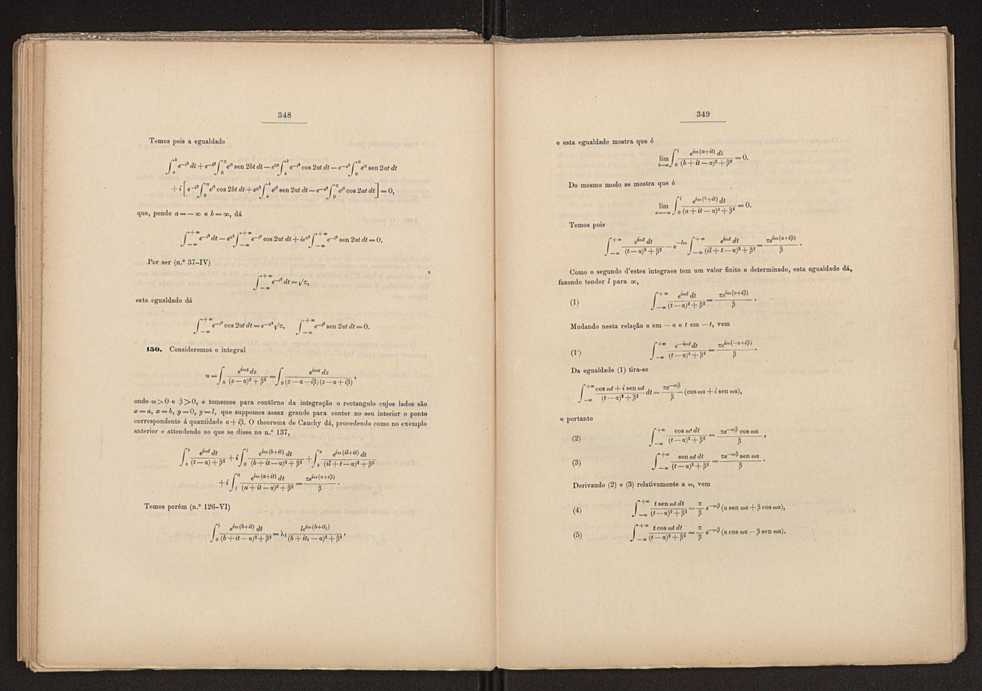 348
Temos pois a egualdade
∫_a^b e^{-t²} dt + e^{-b²} ∫_0^a e^{t²} sen 2bt dt − e^{a²} ∫_a^b e^{-t²} cos 2at dt − e^{-a²} ∫_0^a e^{t²} sen 2at dt
+ i [ e^{-b²} ∫_0^a e^{t²} cos 2bt dt + e^{a²} ∫_a^b e^{-t²} sen 2at dt − e^{-a²} ∫_0^a e^{t²} cos 2at dt ] = 0,
que, pondo a = — ∞ e b = ∞, dá
∫_{-∞}^{+∞} e^{-t²} dt − e^{a²} ∫_{-∞}^{+∞} e^{-t²} cos 2at dt + ie^{a²} ∫_{-∞}^{+∞} e^{-t²} sen 2at dt = 0.
Por ser (n.º 37-IV)
∫_{-∞}^{+∞} e^{-t²} dt = √π,
esta egualdade dá
∫_{-∞}^{+∞} e^{-t²} cos 2at dt = e^{-a²} √π, ∫_{-∞}^{+∞} e^{-t²} sen 2at dt = 0.
150. Consideremos o integral
u = ∫_s e^{iωz} dz / ((z − α)² + β²) = ∫_s e^{iωz} dz / ((z − α − iβ)(z − α + iβ)),
onde ω > 0 e β > 0, e tomemos para contôrno da integração o rectangulo cujos lados são
x = a, x = b, y = 0, y = l, que suppomos assaz grande para conter no seu interior o ponto
correspondente á quantidade α + iβ. O theorema de Cauchy dá, procedendo como no exemplo
anterior e attendendo ao que se disse no n.º 137,
∫_a^b e^{iωt} dt / ((t − α)² + β²) + i ∫_0^l e^{iω(b+it)} dt / ((b + it − α)² + β²) + ∫_b^a e^{iω(il+t)} dt / ((il + t − α)² + β²)
+ i ∫_l^0 e^{iω(a+it)} dt / ((a + it − α)² + β²) = πe^{iω(α+iβ)} / β .
Temos porém (n.º 126-VI)
∫_0^l e^{iω(b+it)} dt / ((b + it − α)² + β²) = λ₁ le^{iω(b+it₁)} / ((b + it₁ − α)² + β²),
349
e esta egualdade mostra que é
lim_{b=∞} ∫_0^l e^{iω(b+it)} dt / ((b + it − α)² + β²) = 0.
Do mesmo modo se mostra que é
lim_{a=−∞} ∫_0^l e^{iω(a+it)} dt / ((a + it − α)² + β²) = 0.
Temos pois
∫_{-∞}^{+∞} e^{iωt} dt / ((t − α)² + β²) − e^{-lω} ∫_{-∞}^{+∞} e^{iωt} dt / ((il + t − α)² + β²) = πe^{iω(α+iβ)} / β .
Como o segundo d'estes integraes tem um valor finito e determinado, esta egualdade dá,
fazendo tender l para ∞,
(1) ∫_{-∞}^{+∞} e^{iωt} dt / ((t − α)² + β²) = πe^{iω(α+iβ)} / β .
Mudando nesta relação α em — α e t em — t, vem
(1') ∫_{-∞}^{+∞} e^{-iωt} dt / ((t − α)² + β²) = πe^{iω(−α+iβ)} / β .
Da egualdade (1) tira-se
∫_{-∞}^{+∞} (cos ωt + i sen ωt) / ((t − α)² + β²) dt = πe^{-ωβ} / β (cos ωα + i sen ωα),
e portanto
(2) ∫_{-∞}^{+∞} cos ωt dt / ((t − α)² + β²) = πe^{-ωβ} cos ωα / β ,
(3) ∫_{-∞}^{+∞} sen ωt dt / ((t − α)² + β²) = πe^{-ωβ} sen ωα / β .
Derivando (2) e (3) relativamente a ω, vem
(4) ∫_{-∞}^{+∞} t sen ωt dt / ((t − α)² + β²) = π/β e^{-ωβ} (α sen ωα + β cos ωα),
(5) ∫_{-∞}^{+∞} t cos ωt dt / ((t − α)² + β²) = π/β e^{-ωβ} (α cos ωα − β sen ωα).